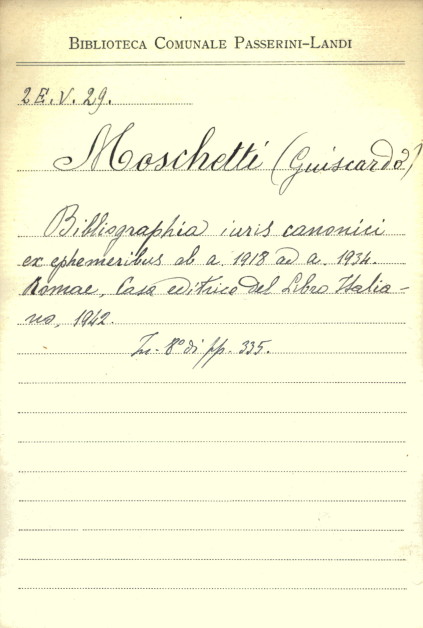 BIBLIOTECA COMUNALE PASSERINI-LANDI
2E.V.29.
Moschetti (Guiscardo)
Bibliographia iuris canonici
ex ephemeribus ab a. 1918 ad a. 1934.
Romae, Casa editrice del Libro Italia-
no, 1942.
In-8° di pp. 335.